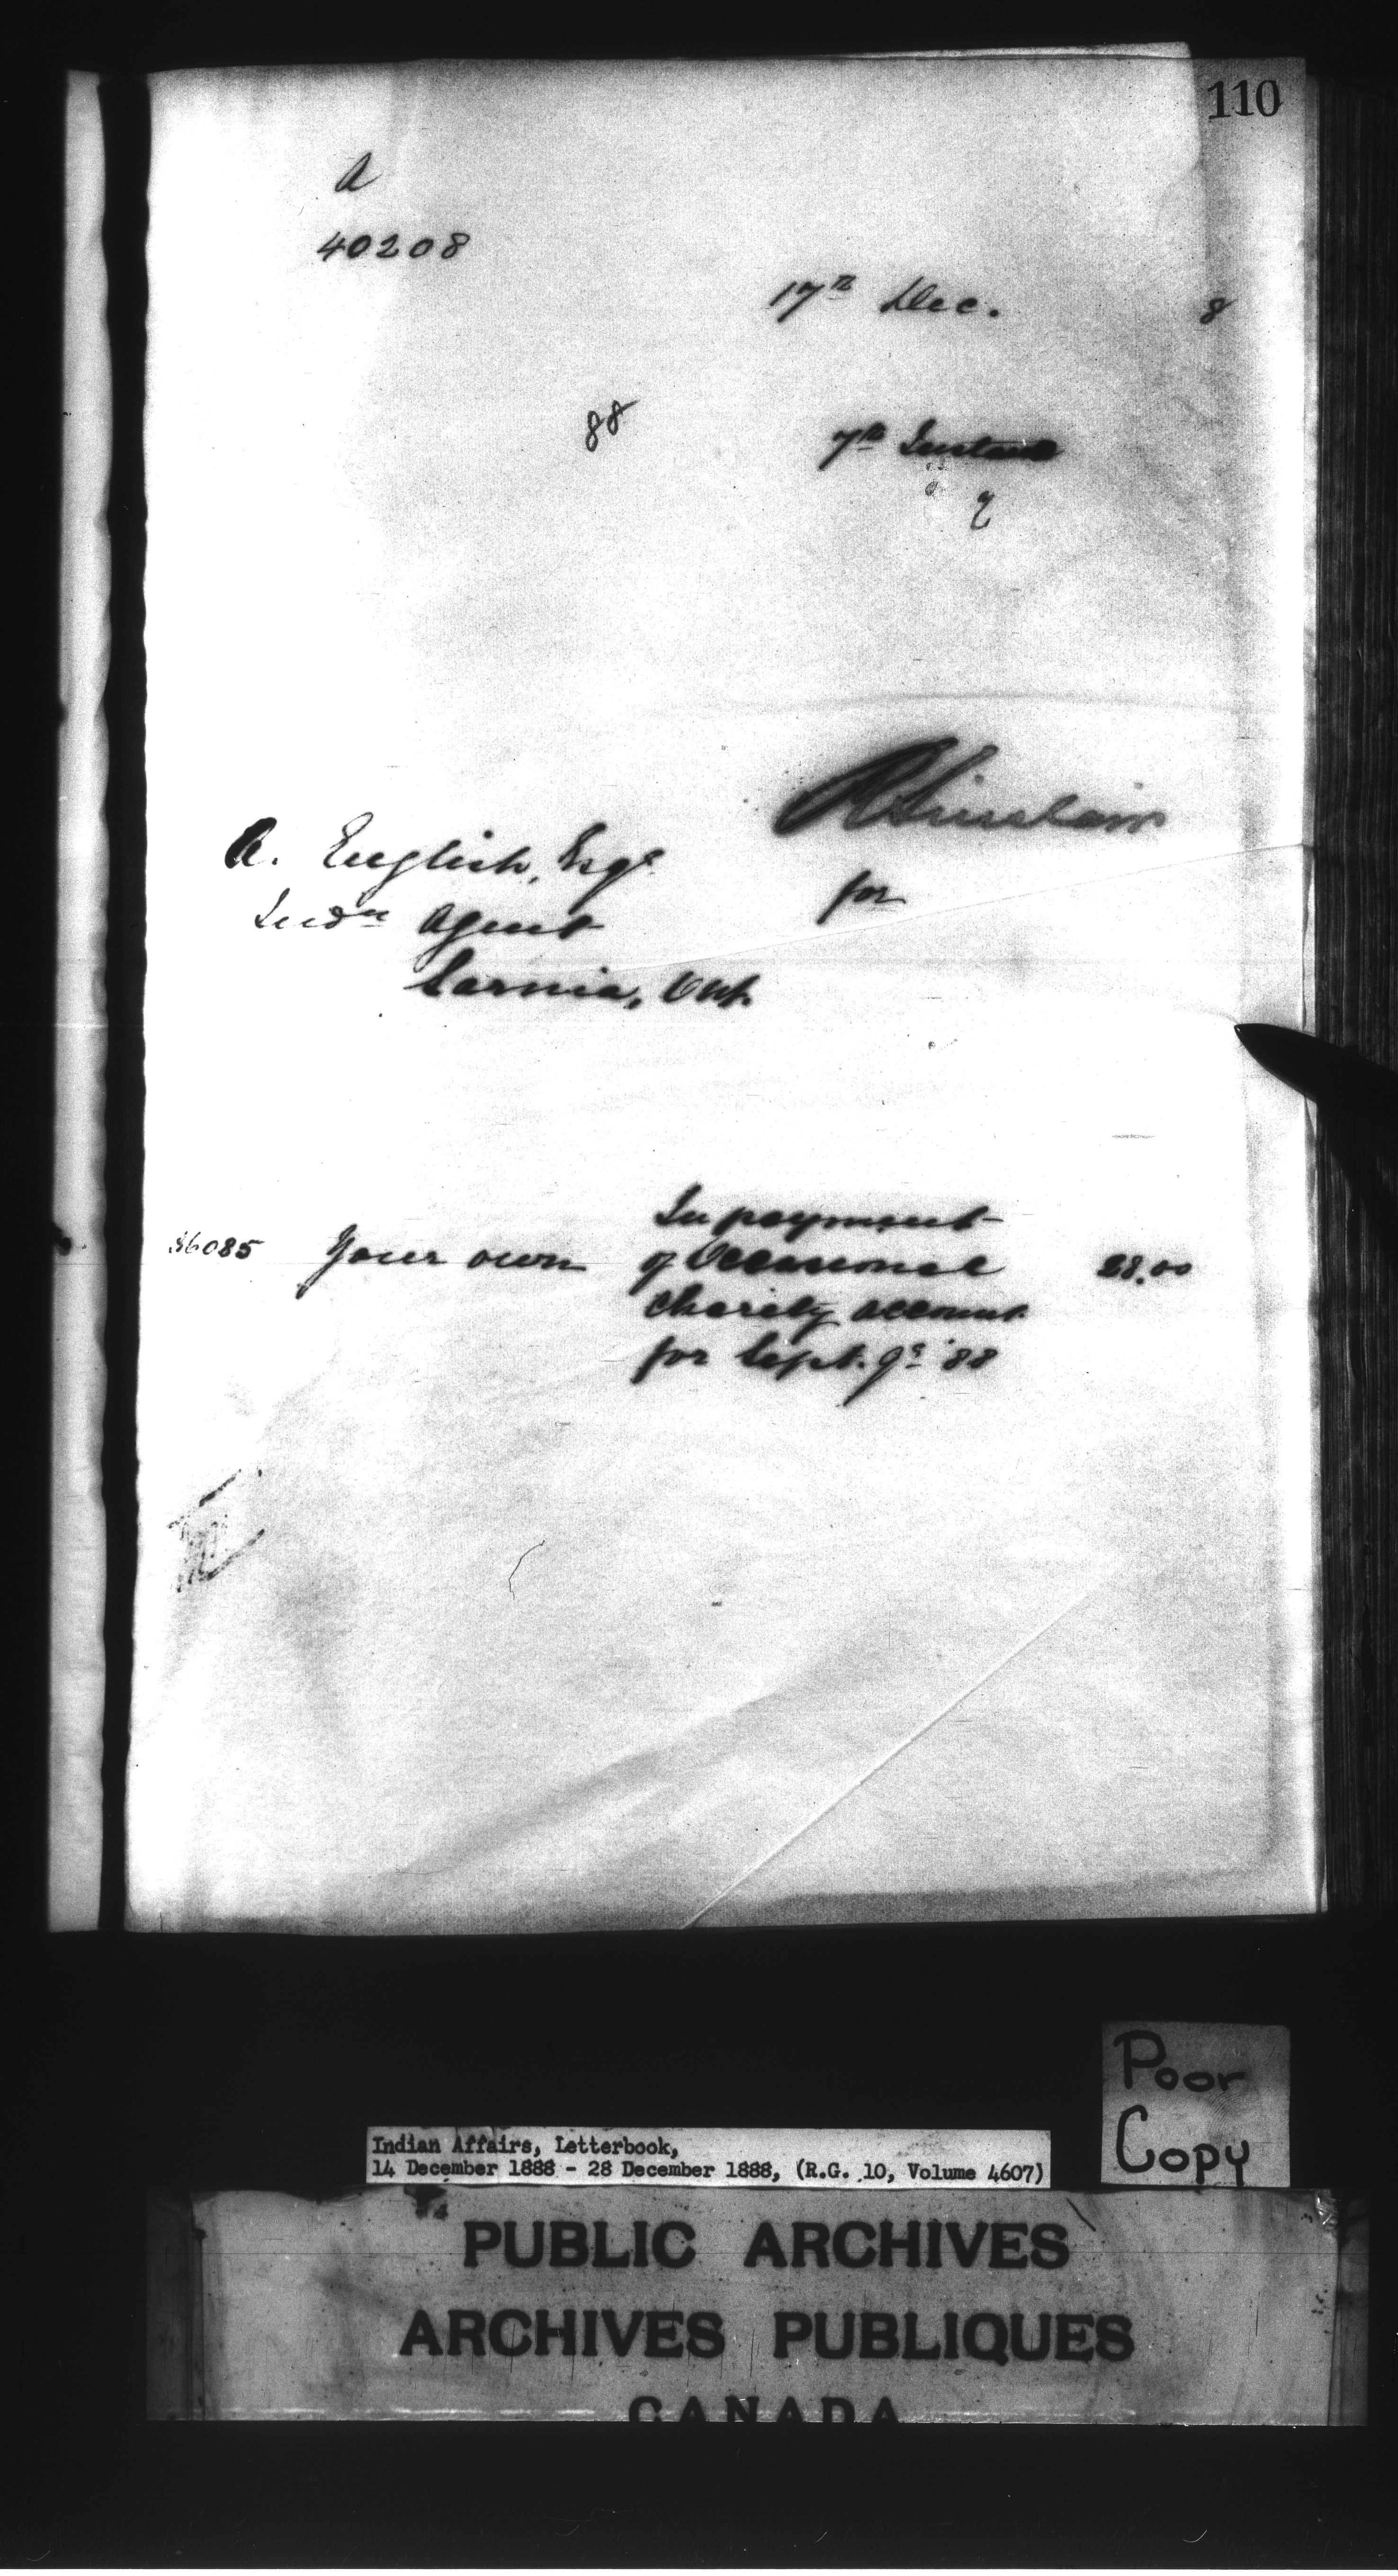 110
A
40208
17th Dec. 8
88 7th Instant
R Sinclair
for
A. English, Esqr
Indn Agent
Sarnia, Ont.
In payment
36085 Your own of Occasional 28.00
Charity account
for Sept. qr '88
Poor
Copy
Indian Affairs, Letterbook,
14 December 1888 - 28 December 1888, (R.G. 10, Volume 4607)
PUBLIC ARCHIVES
ARCHIVES PUBLIQUES
CANADA